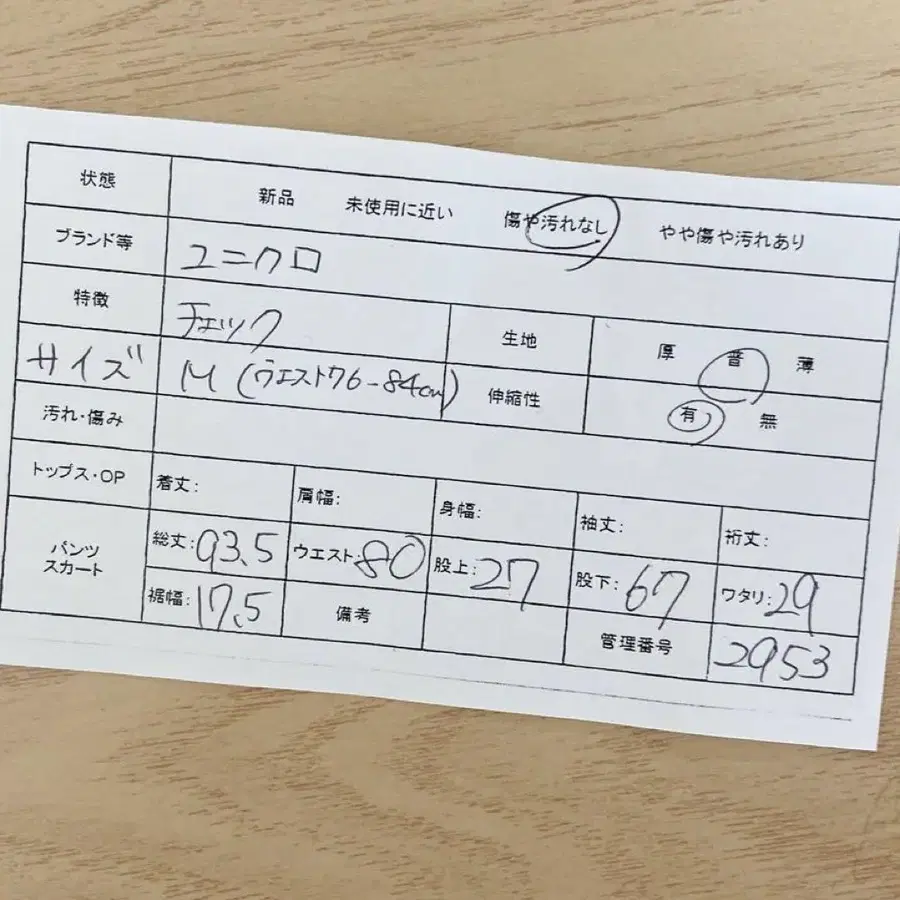 状態 新品 未使用に近い 傷や汚れなし やや傷や汚れあり
ブランド等 ユニクロ
特徴 チェック 生地 厚 普 薄
サイズ M(ウエスト76-84cm) 伸縮性 有 無
汚れ・傷み
トップス・OP 着丈: 肩幅: 身幅: 袖丈: 裄丈:
パンツ
スカート
総丈:93.5 ウエスト:80 股上:27 股下:67 ワタリ:29
裾幅:17.5 備考 管理番号 2953